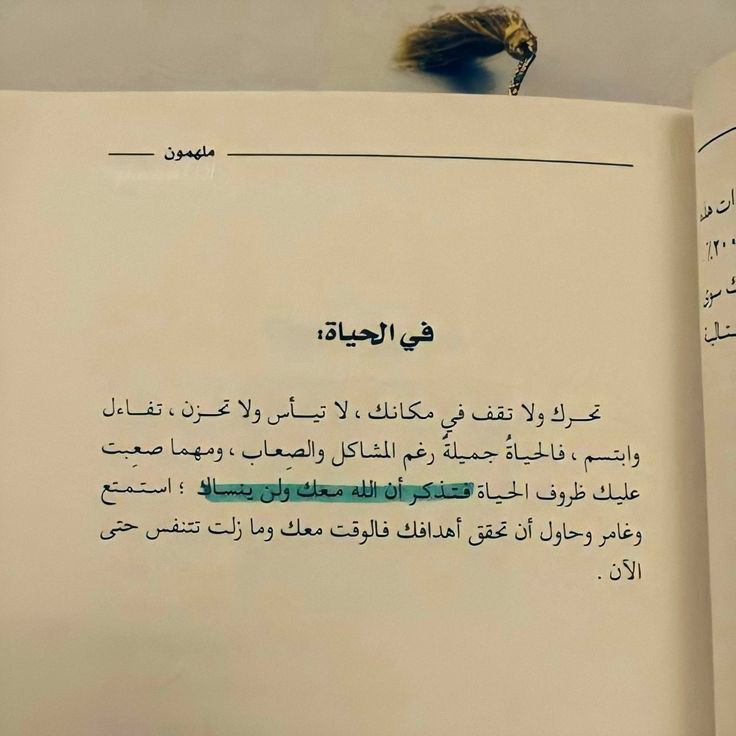 ملهمون
في الحياة:
تحرك ولا تقف في مكانك ، لا تيـأس ولا تحـزن ، تفـاءل
وابتسم ، فالحياةُ جميلةٌ رغم المشاكل والصِعاب ، ومهما صعِبت
عليك ظروف الحياة فتـذكـر أن الله معـك ولن ينسـاك ؛ استـمتع
وغامر وحاول أن تحقق أهدافك فالوقت معك وما زلت تتنفس حتى
الآن .
ات هذه
٢٠٪
ك سوى